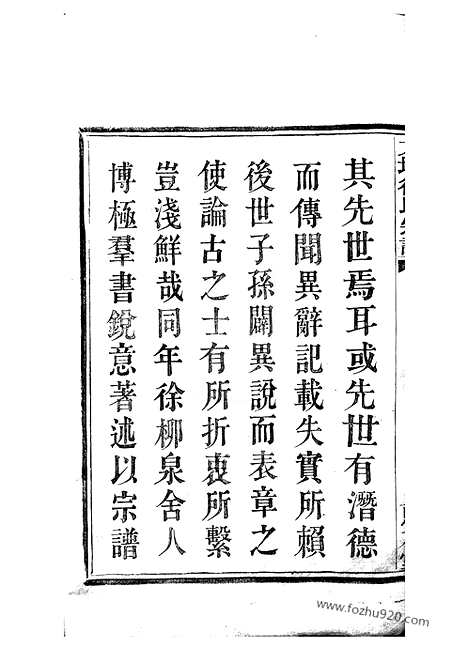 其先世焉耳或先世有潛德
而傳聞異辭記載失實所賴
後世子孫闢異說而表章之
使論古之士有所折衷所繫
豈淺鮮哉同年徐柳泉舍人
博極羣書銳意著述以宗譜
www.fozhu920.com